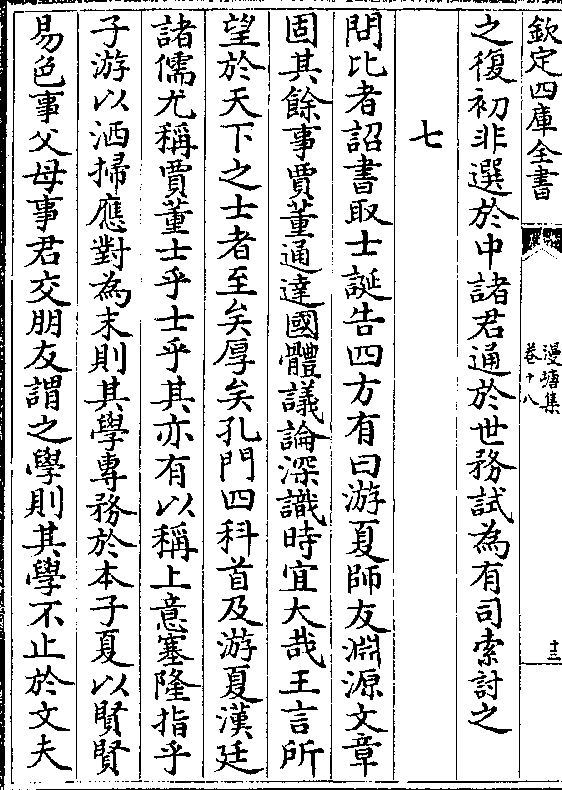 欽定四庫全書
漫塘集
卷十八
十三
之復初非選於中諸君通於世務試為有司索討之
七
問比者詔書取士誕告四方有曰游夏師友淵源文章
固其餘事賈董通達國體議論深識時宜大哉王言所
望於天下之士者至矣厚矣孔門四科首及游夏漢廷
諸儒尤稱賈董士乎士乎其亦有以稱上意塞隆指乎
子游以洒掃應對為末則其學專務於本子夏以賢賢
易色事父母事君交朋友謂之學則其學不止於文夫